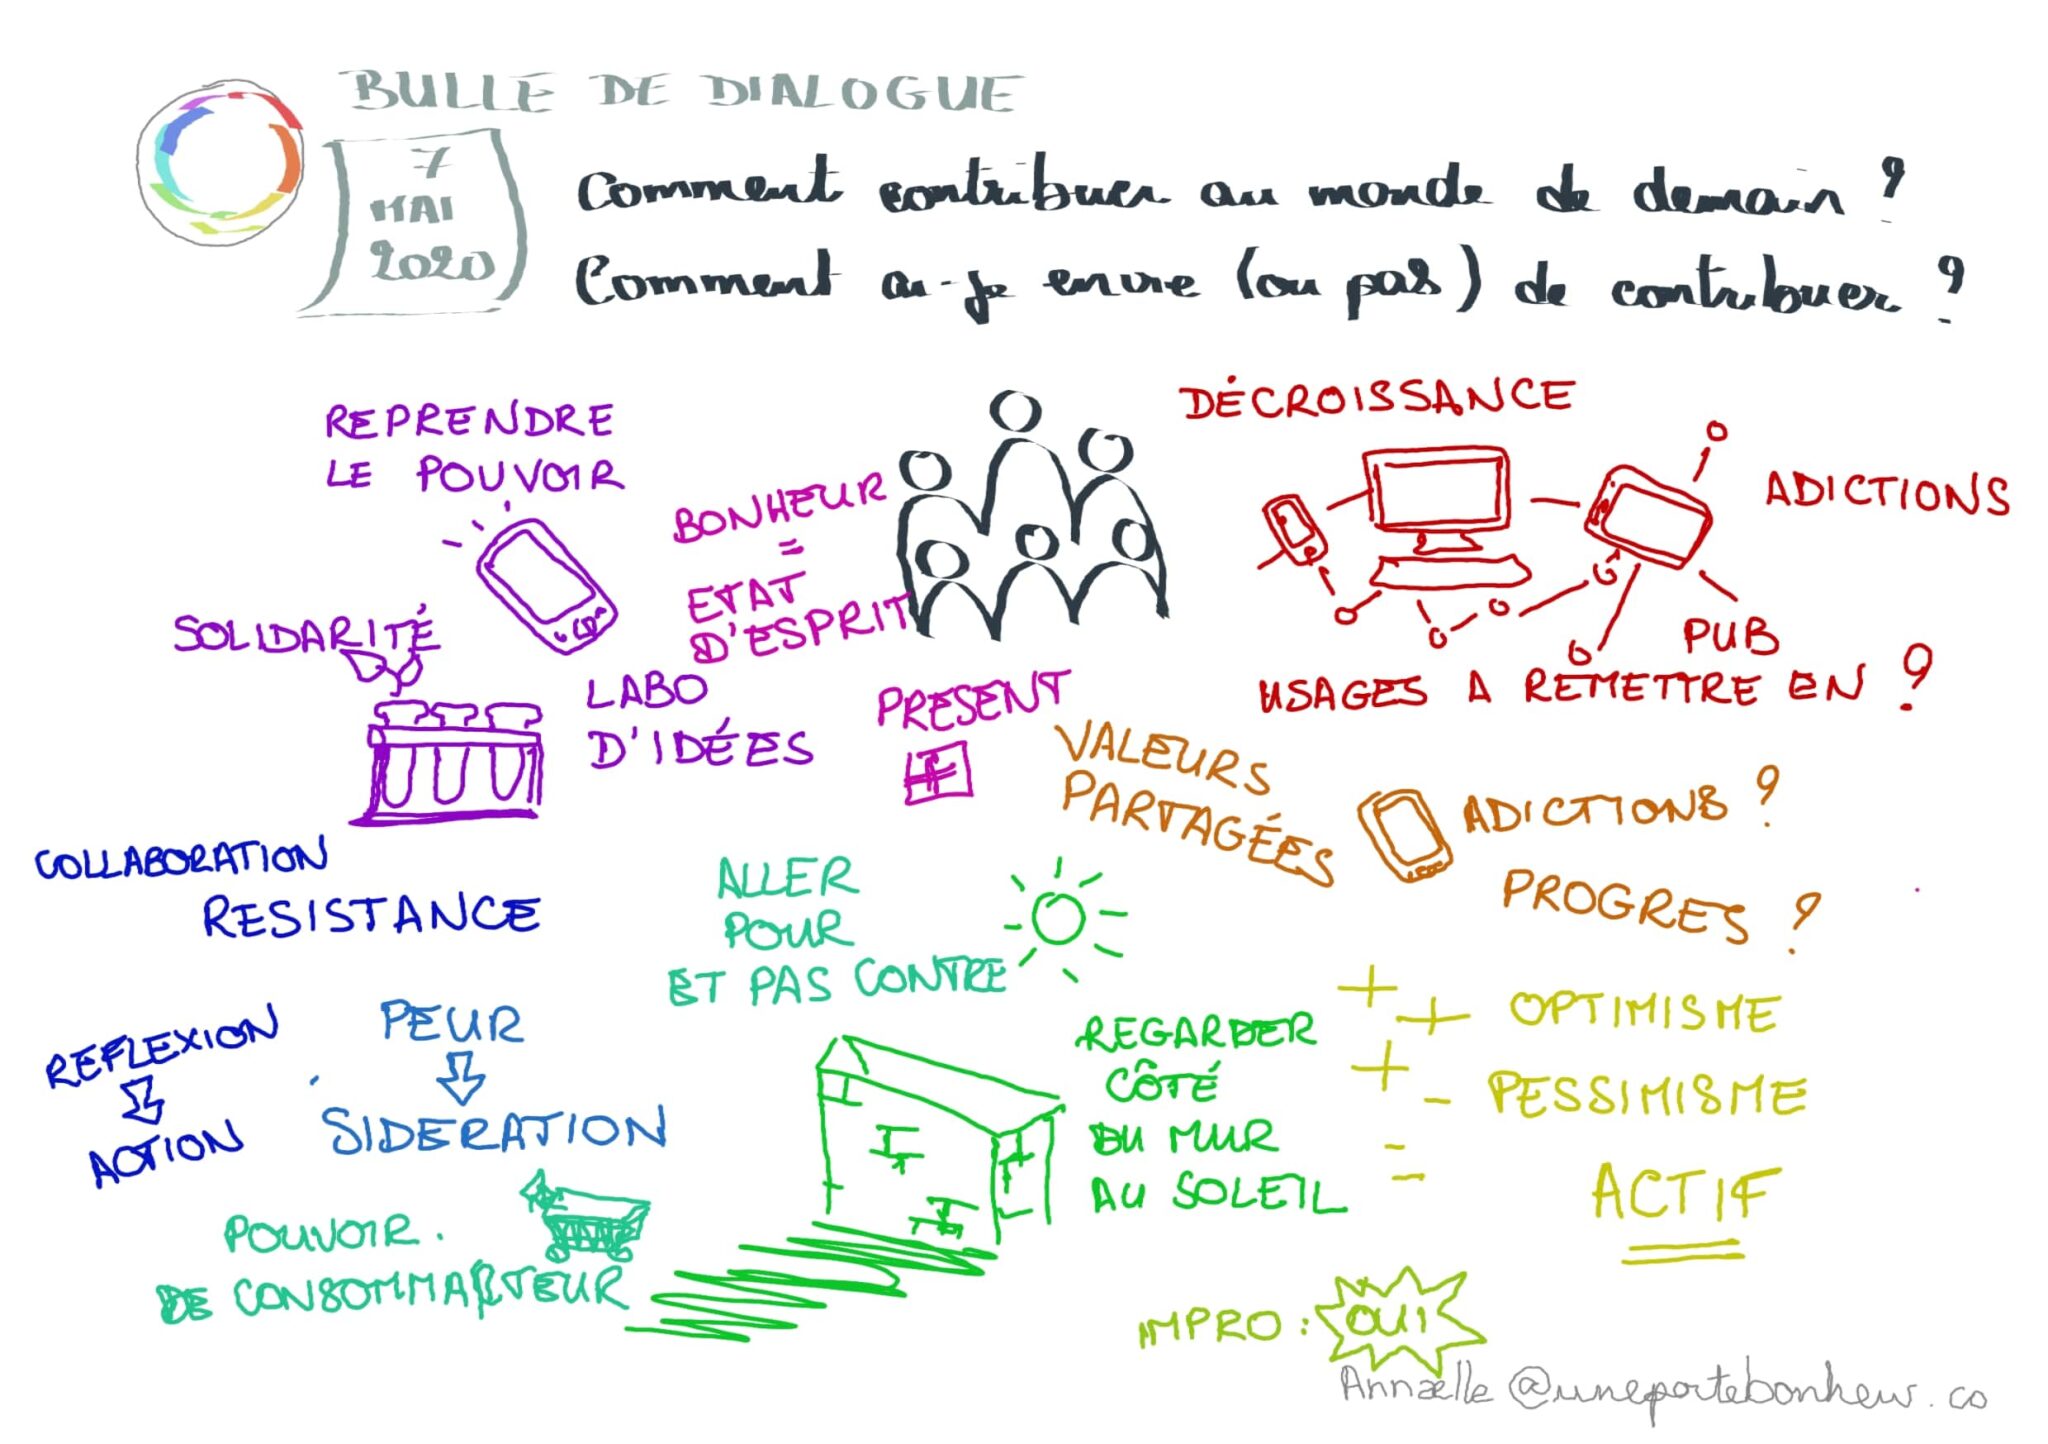 BULLE DE DIALOGUE
7
MAI
2020
Comment contribuer au monde de demain ?
Comment ai-je envie (ou pas) de contribuer ?
REPRENDRE
LE POUVOIR
SOLIDARITÉ
LABO
D'IDÉES
BONHEUR
=
ETAT
D'ESPRIT
PRESENT
DÉCROISSANCE
ADICTIONS
PUB
USAGES A REMETTRE EN ?
VALEURS
PARTAGÉES
ADICTIONS ?
PROGRES ?
COLLABORATION
RESISTANCE
REFLEXION
ACTION
PEUR
SIDERATION
ALLER
POUR
ET PAS CONTRE
REGARDER
CÔTÉ
DU MUR
AU SOLEIL
+ + + OPTIMISME
- - - PESSIMISME
ACTIF
POUVOIR
DE CONSOMMARTEUR
IMPRO : OUI
Annaelle @uneportebonheur.co